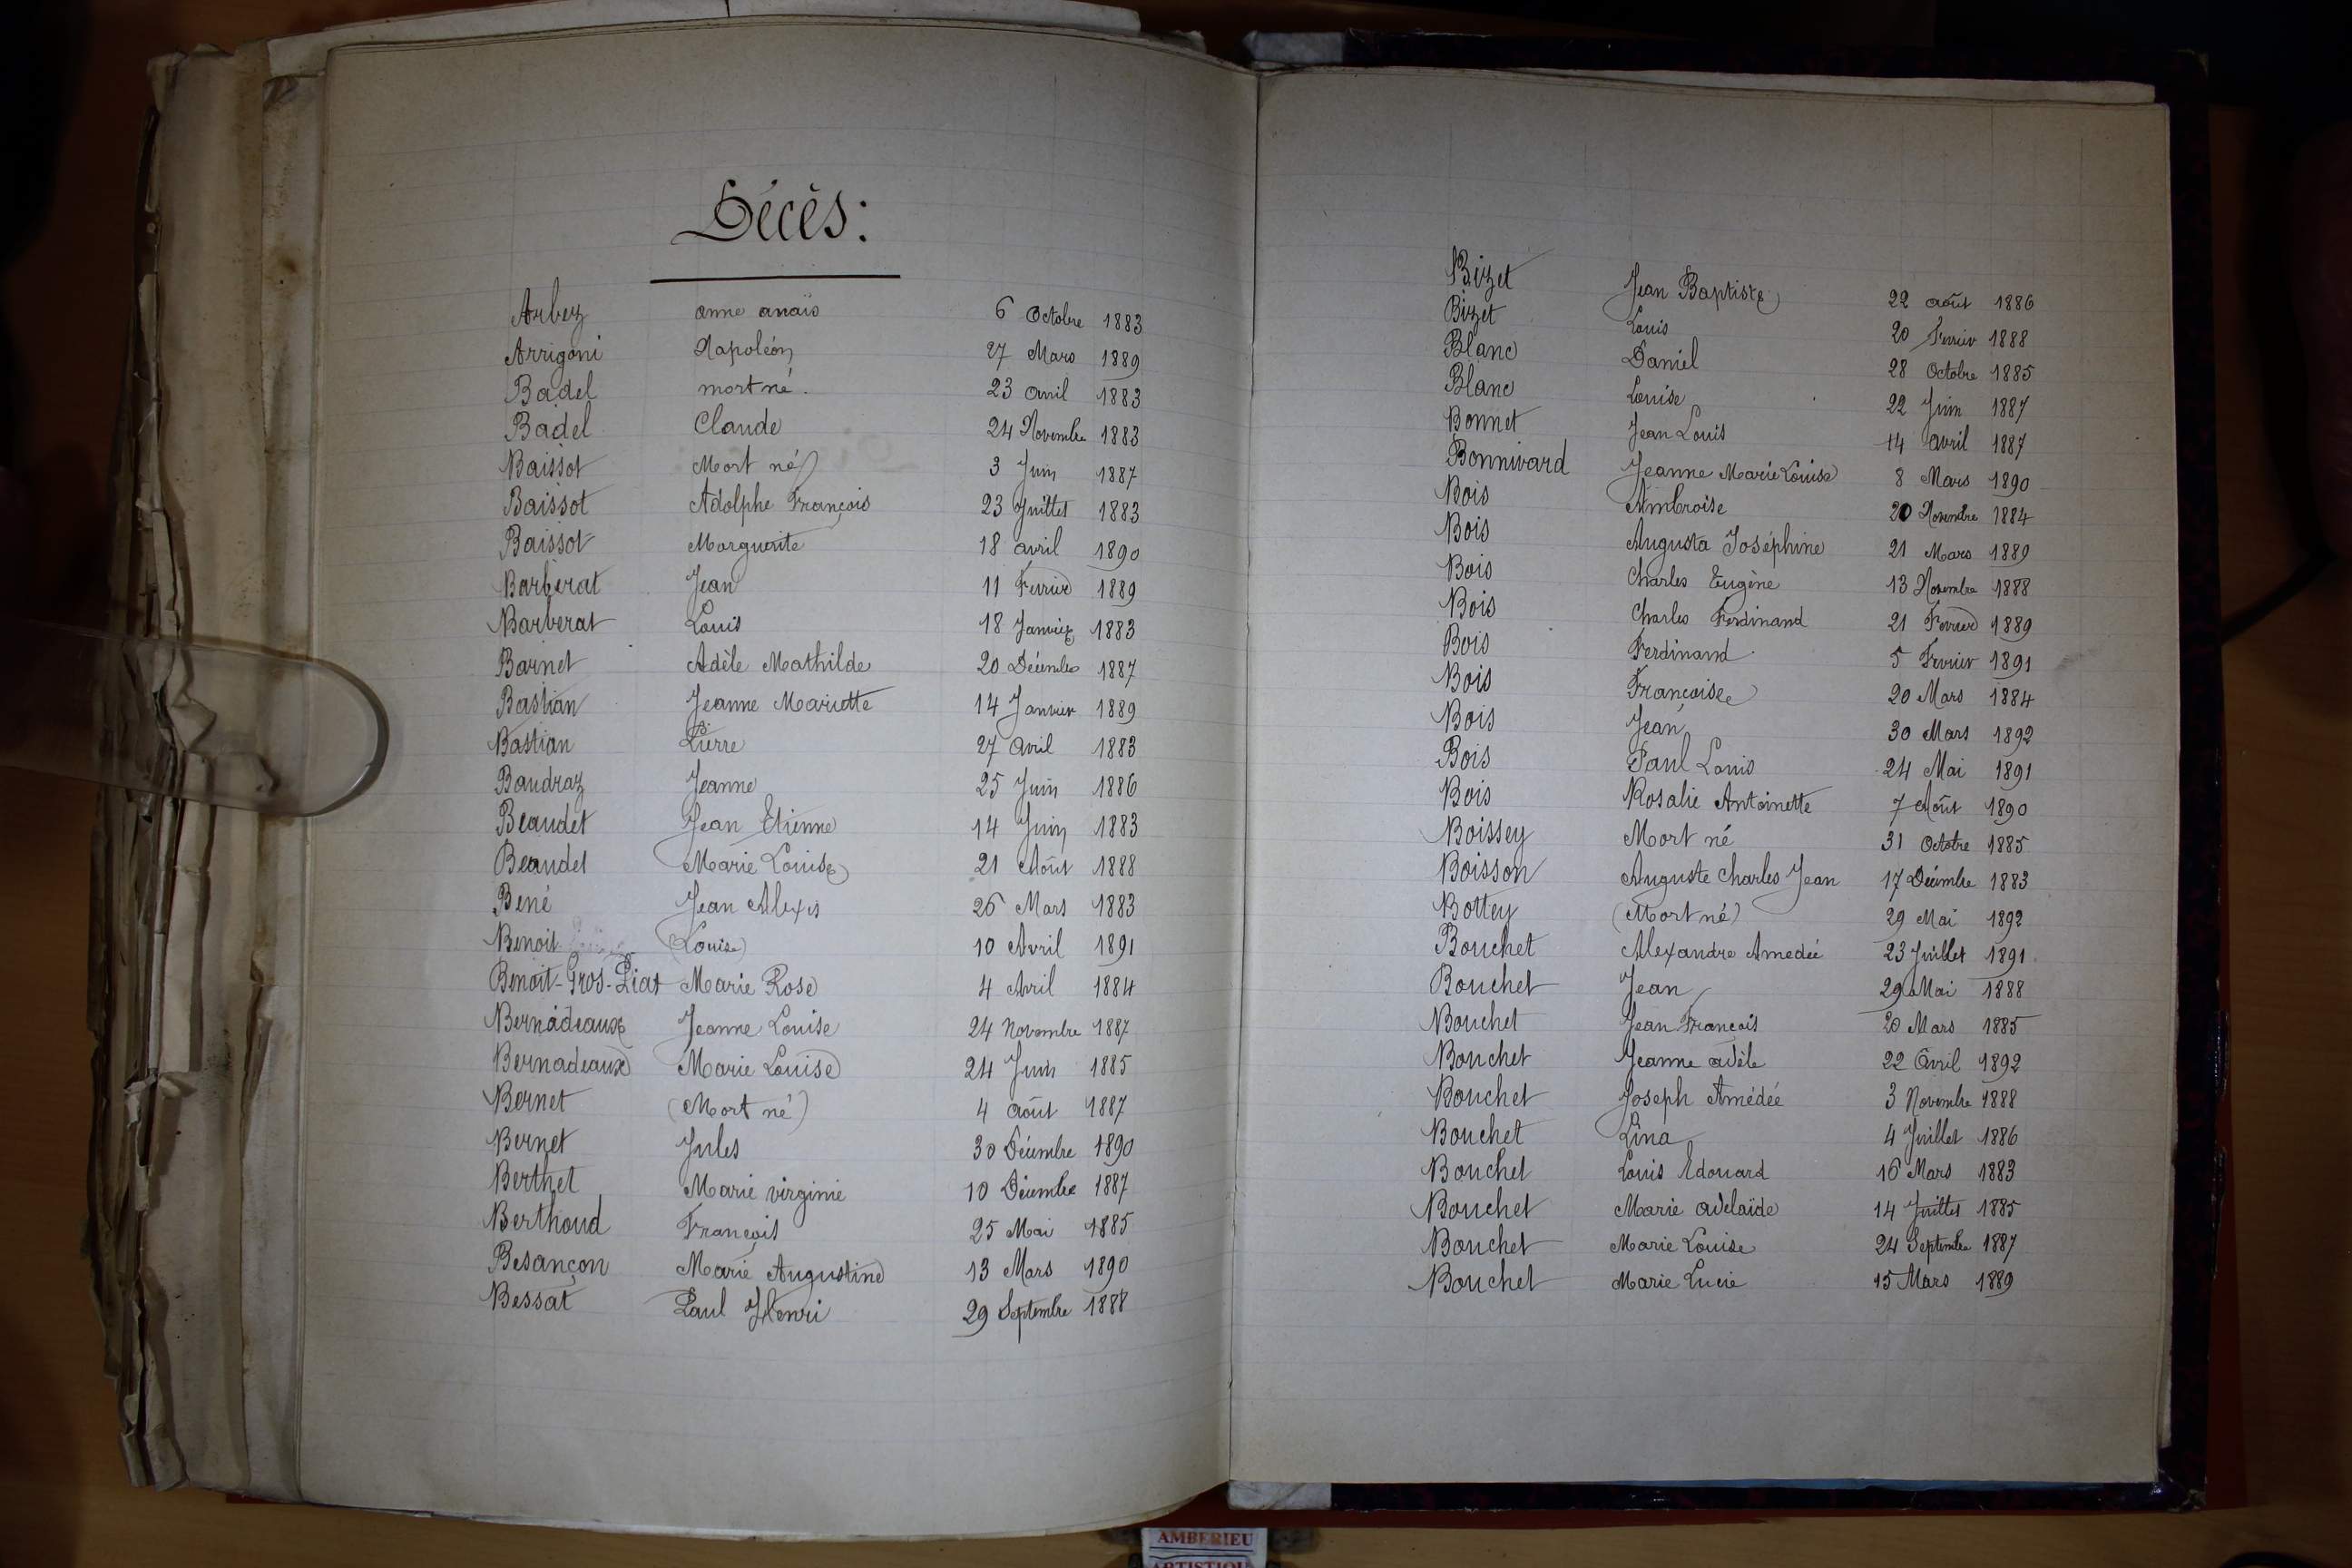 Décès:
Arbez anne anaïs 6 Octobre 1883
Arrigoni Napoléon 27 Mars 1889
Badel mort né. 23 avril 1883
Badel Claude 24 Novembre 1883
Baissot Mort né 3 Juin 1887
Baissot Adolphe François 23 Juillet 1883
Baissot Marguerite 18 avril 1890
Barberat Jean 11 Fevrier 1889
Barberat Louis 18 Janvier 1883
Barnet Adèle Mathilde 20 Décembre 1887
Bastian Jeanne Mariette 14 Janvier 1889
Bastian Pierre 27 Avril 1883
Baudraz Jeanne 25 Juin 1886
Beaudet Jean Etienne 14 Juin 1883
Beaudet Marie Louise 21 Août 1888
Bené Jean Alexis 26 Mars 1883
Benoit (Louise) 10 Avril 1891
Benoit-Gros-Piat Marie Rose 4 Avril 1884
Bernadeaux Jeanne Louise 24 Novembre 1887
Bernadeaux Marie Louise 24 Juin 1885
Bernet (Mort né) 4 août 1887
Bernet Jules 30 Décembre 1890
Berthet Marie virginie 10 Décembre 1887
Berthoud François 25 Mai 1885
Besançon Marie Augustine 13 Mars 1890
Bessat Paul Henri 29 Septembre 1888
Bizet Jean Baptiste 22 août 1886
Bizet Louis 20 Fevrier 1888
Blanc Daniel 28 Octobre 1885
Blanc Louise 22 Juin 1887
Bonnet Jean Louis 14 avril 1887
Bonnivard Jeanne Marie Louise 8 Mars 1890
Bois Ambroise 20 Novembre 1884
Bois Augusta Joséphine 21 Mars 1889
Bois Charles Eugène 13 Novembre 1888
Bois Charles Ferdinand 21 Fevrier 1889
Bois Ferdinand 5 Fevrier 1891
Bois Françoise 20 Mars 1884
Bois Jean 30 Mars 1892
Bois Paul Louis 24 Mai 1891
Bois Rosalie Antoinette 7 Août 1890
Boissey Mort né 31 Octobre 1885
Boisson Auguste Charles Jean 17 Décembre 1883
Bottey (Mort né) 29 Mai 1892
Bouchet Alexandre Amedée 23 Juillet 1891
Bouchet Jean 29 Mai 1888
Bouchet Jean François 20 Mars 1885
Bouchet Jeanne adèle 22 Avril 1892
Bouchet Joseph Amédée 3 Novembre 1888
Bouchet Lina 4 Juillet 1886
Bouchet Louis Edouard 16 Mars 1883
Bouchet Marie adelaïde 14 Juillet 1885
Bouchet Marie Louise 24 Septembre 1887
Bouchet Marie Lucie 15 Mars 1889
AMBERIEU